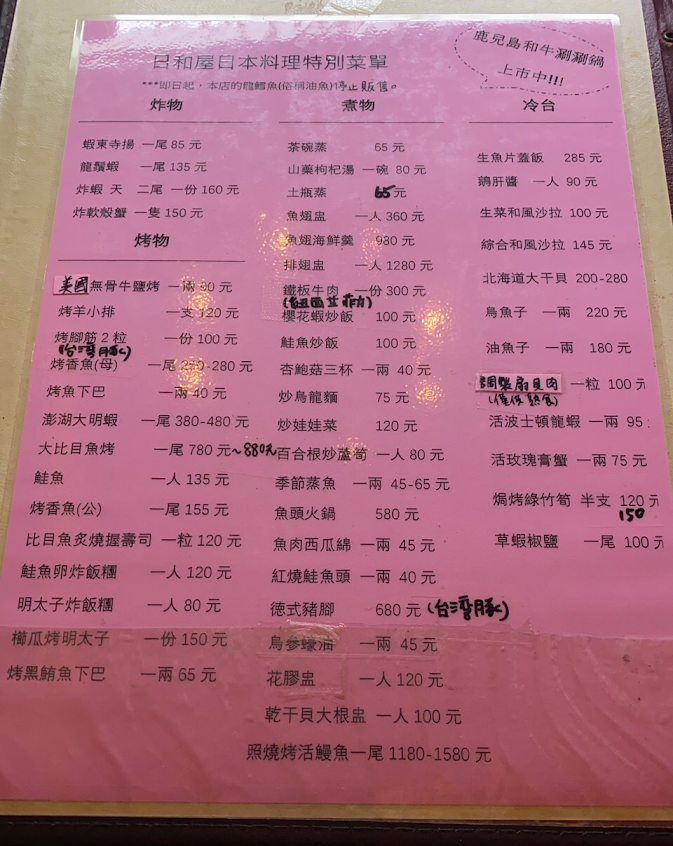 日和屋日本料理特別菜單
鹿兒島和牛涮涮鍋
上市中!!!
***即日起，本店的龍鱈魚(俗稱油魚)停止販售。
炸物
蝦東寺揚 一尾 85 元
龍鬚蝦 一尾 135 元
炸蝦 天 二尾 一份 160 元
炸軟殼蟹 一隻 150 元
烤物
美國無骨牛鹽烤 一兩 90 元
烤羊小排 一支 120 元
烤腳筋 2 粒 一份 100 元
(台湾豚)
烤香魚(母) 一尾 -280 元
烤魚下巴 一兩 40 元
澎湖大明蝦 一尾 380-480 元
大比目魚烤 一尾 780 元~880元
鮭魚 一人 135 元
烤香魚(公) 一尾 155 元
比目魚炙燒握壽司 一粒 120 元
鮭魚卵炸飯糰 一人 120 元
明太子炸飯糰 一人 80 元
櫛瓜烤明太子 一份 150 元
烤黑鮪魚下巴 一兩 65 元
煮物
茶碗蒸 65 元
山藥枸杞湯 一碗 80 元
土瓶蒸 65 元
魚翅盅 一人 360 元
魚翅海鮮羹 930 元
排翅盅 一人 1280 元
鐵板牛肉 一份 300 元
(紐西兰菲力)
櫻花蝦炒飯 100 元
鮭魚炒飯 100 元
杏鮑菇三杯 一兩 40 元
炒烏龍麵 75 元
炒娃娃菜 120 元
百合根炒蘆筍 一人 80 元
季節蒸魚 一兩 45-65 元
魚頭火鍋 580 元
魚肉西瓜綿 一兩 45 元
紅燒鮭魚頭 一兩 40 元
德式豬腳 680 元 (台湾豚)
烏參蠔油 一兩 45 元
花膠盅 一人 120 元
乾干貝大根盅 一人 100 元
照燒烤活鰻魚一尾 1180-1580 元
冷台
生魚片蓋飯 285 元
鵝肝醬 一人 90 元
生菜和風沙拉 100 元
綜合和風沙拉 145 元
北海道大干貝 200-280
烏魚子 一兩 220 元
油魚子 一兩 180 元
調製扇貝肉 一粒 100 元
(僅供熟食)
活波士頓龍蝦 一兩 95
活玫瑰膏蟹 一兩 75 元
焗烤綠竹筍 半支 120 元
150
草蝦椒鹽 一尾 100 元